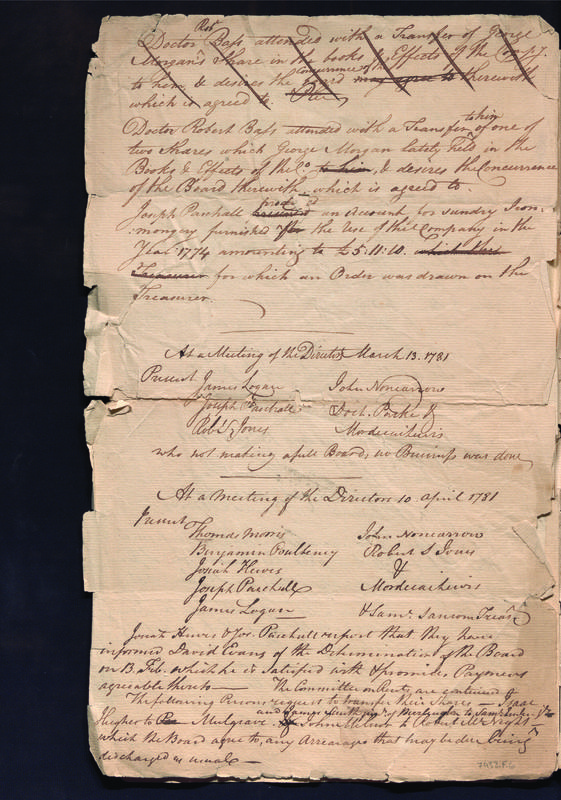 Robt
Doctor Bass attended with a Transfer of George
Morgan's Share in the books & Effects of the Compy.
to him, & desires the Concurrence of the board may agree to therewith
which is agreed to.
Doctor Robert Bass attended with a Transfer to him of one of
two Shares which George Morgan lately held in the
Books & Effects of the Co. to him, & desires the Concurrence
of the Board therewith which is agreed to.
Joseph Paschall produced an Account for sundry Iron-
mongery furnished for the Use of the Company in the
Year 1774 amounting to £5:11:10. which the
Treasurer for which an Order was drawn on the
Treasurer.
At a Meeting of the Directors March 13. 1781
Present James Logan John Nancarrow
Joseph Paschall Doctr. Parke &
Robt. S. Jones Mordecai Lewis
who not making a full Board, no Business was done
At a Meeting of the Directors 10 April 1781
Present
Thomas Morris John Nancarrow
Benjamin Poultney Robert S Jones
Josiah Hewes &
Joseph Paschall Mordecai Lewis
James Logan & Saml. Sansom Treasr.
Josiah Hewes & Jos. Paschall report that they have
informed David Evans of the Determination of the Board
on 13 Feb. which he is satisfied with & promises Payment
agreeable thereto — The Committee on Rents are continued
The following Persons request to transfer their Shares — Isaac
and James
Hughes to Mulgrave John Wilcocks & Robert McKnight
which the Board agree to, any Arrearages that may be due being
discharged as usual —
7452.F.6